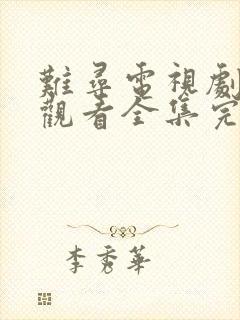 難尋電視劇
觀看全集完
李秀華